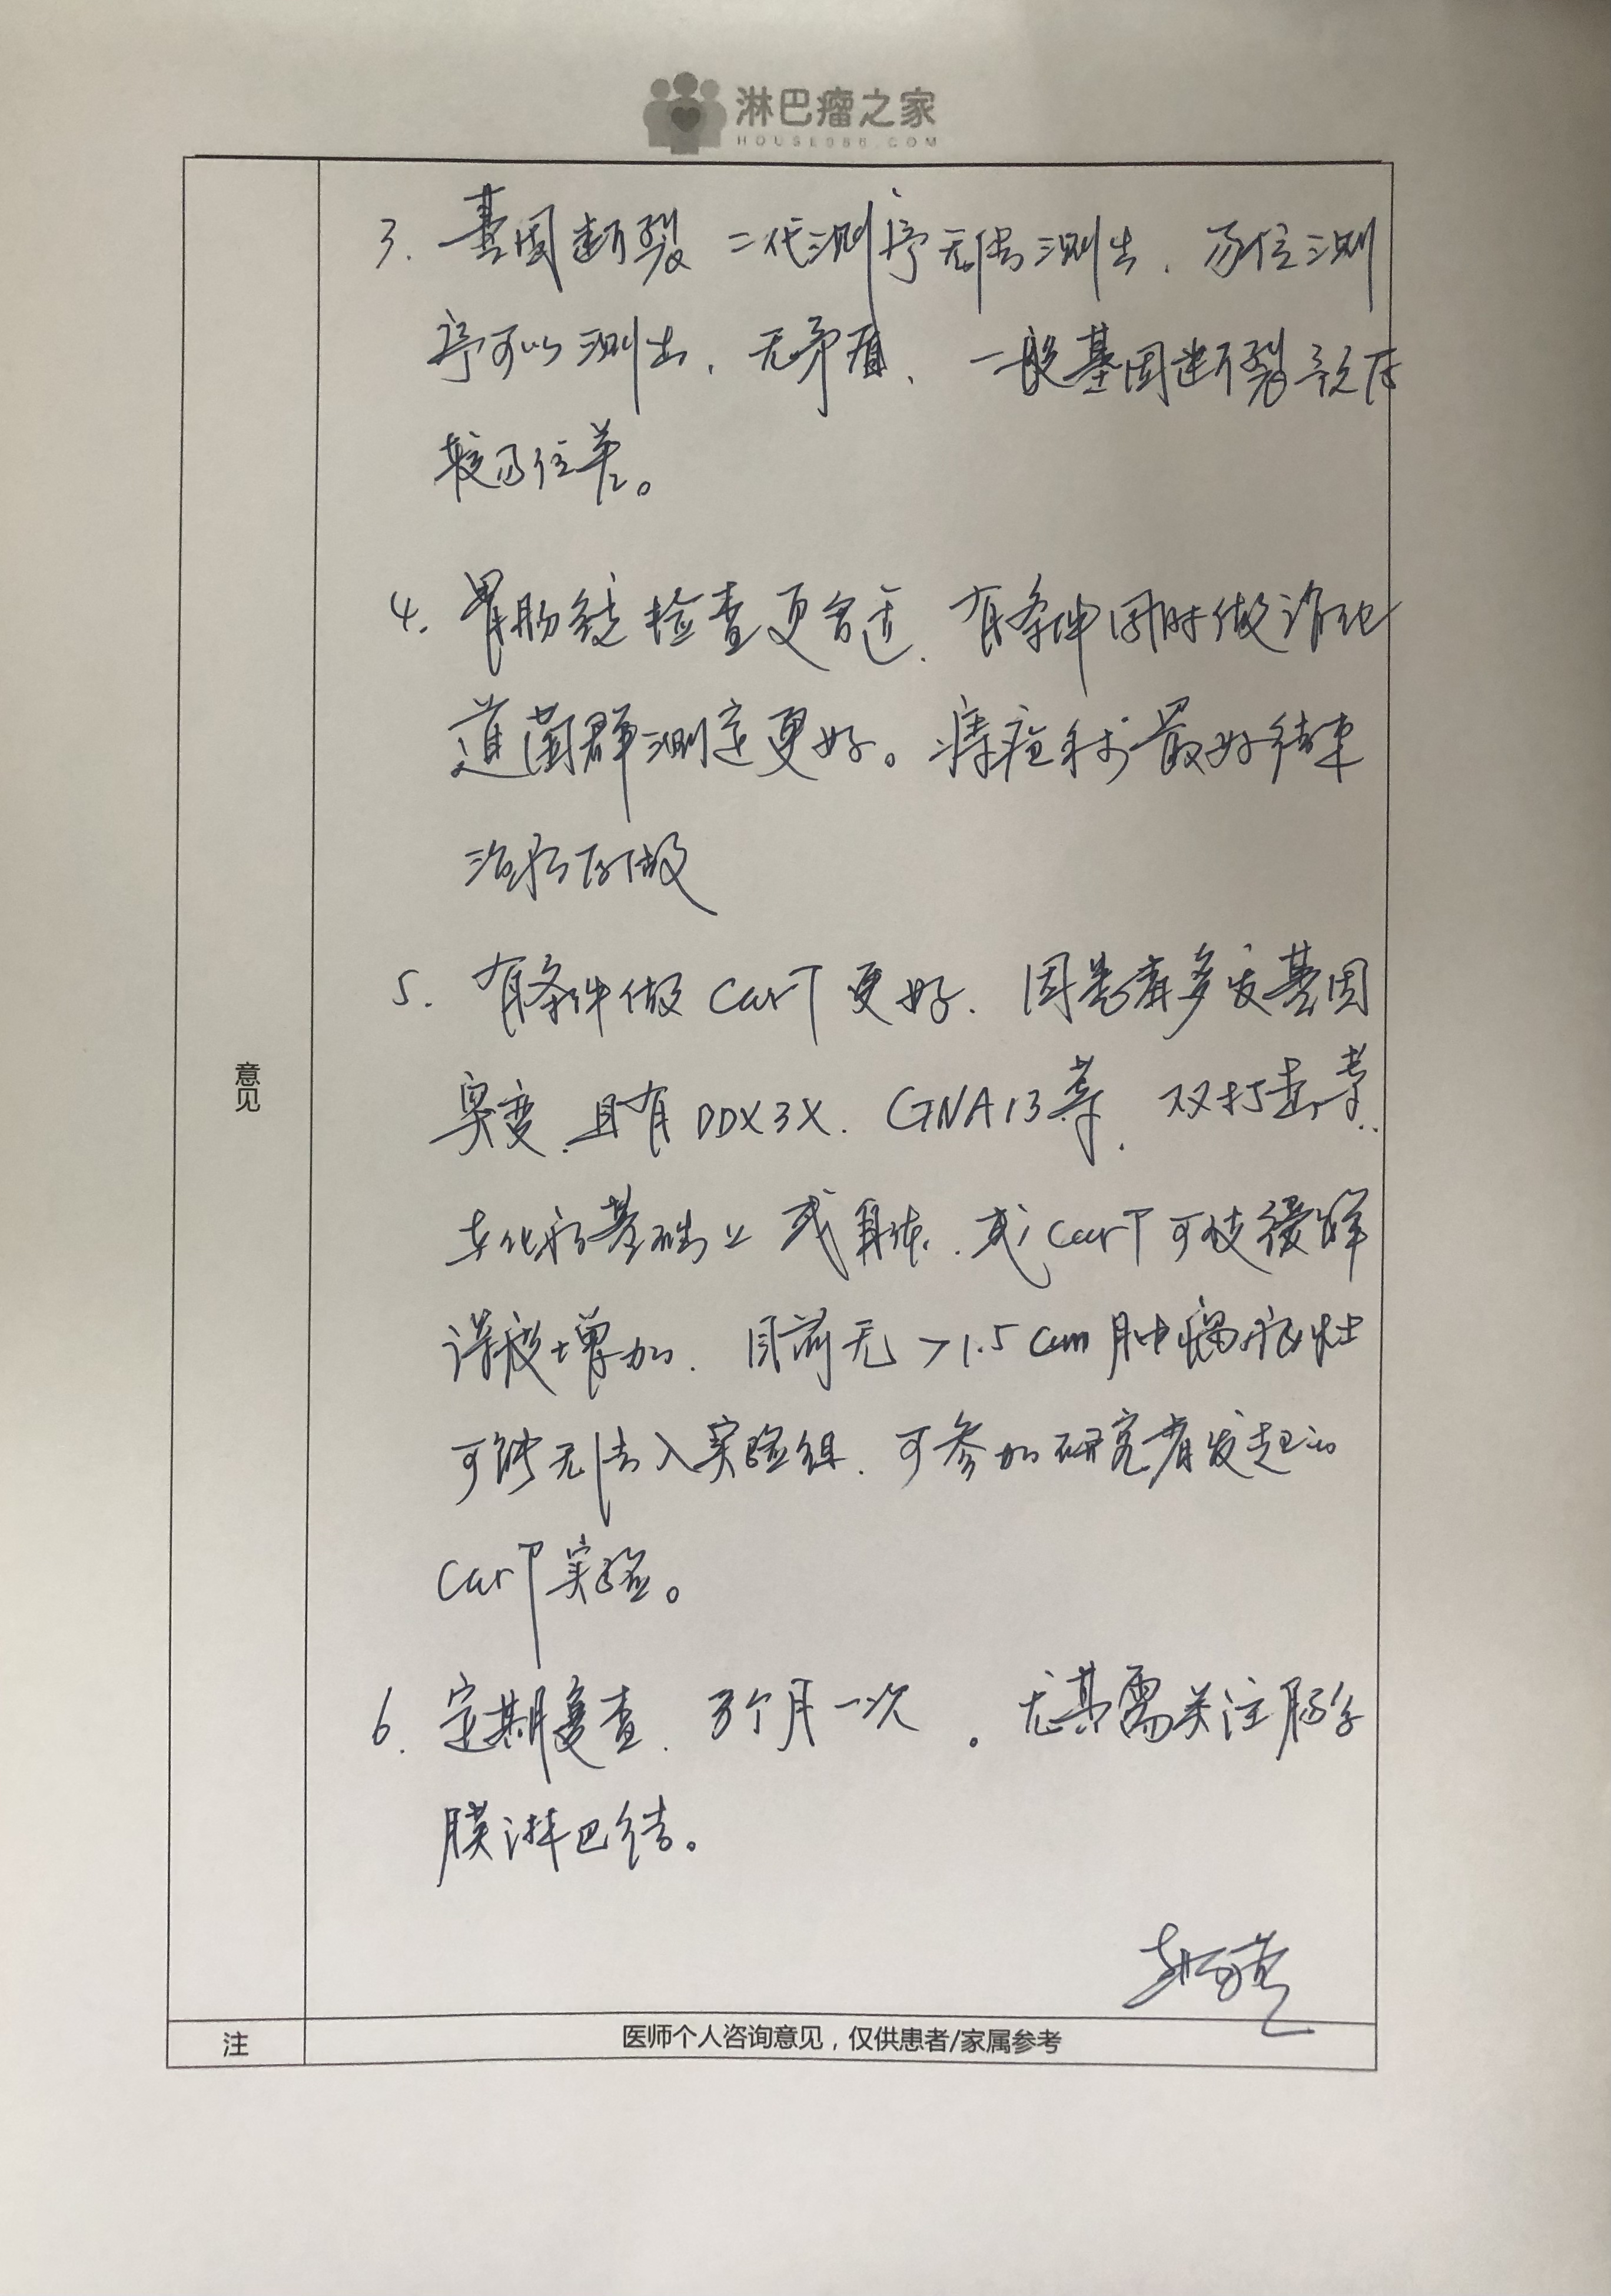 淋巴瘤之家
HOUSE086.COM
3. 基因断裂 二代测序无法测出，易位测
序可以测出，无矛盾、一般基因断裂预后
较易位差。
4. 胃肠镜检查更合适，有条件同时做消化
道菌群测定更好。痔疮手术最好结束
治疗后做
5. 有条件做CarT更好，因患者多发基因
突变，且有DDX3X、GNA13等，双打击等.
在化疗基础上 或自体、或CarT可使缓解
深度增加，目前无>1.5cm肿瘤病灶
可能无法入实验组，可参加研究者发起的
CarT实验。
6. 定期复查，3个月一次。尤其需关注肠系
膜淋巴结。
意见
注
医师个人咨询意见，仅供患者/家属参考